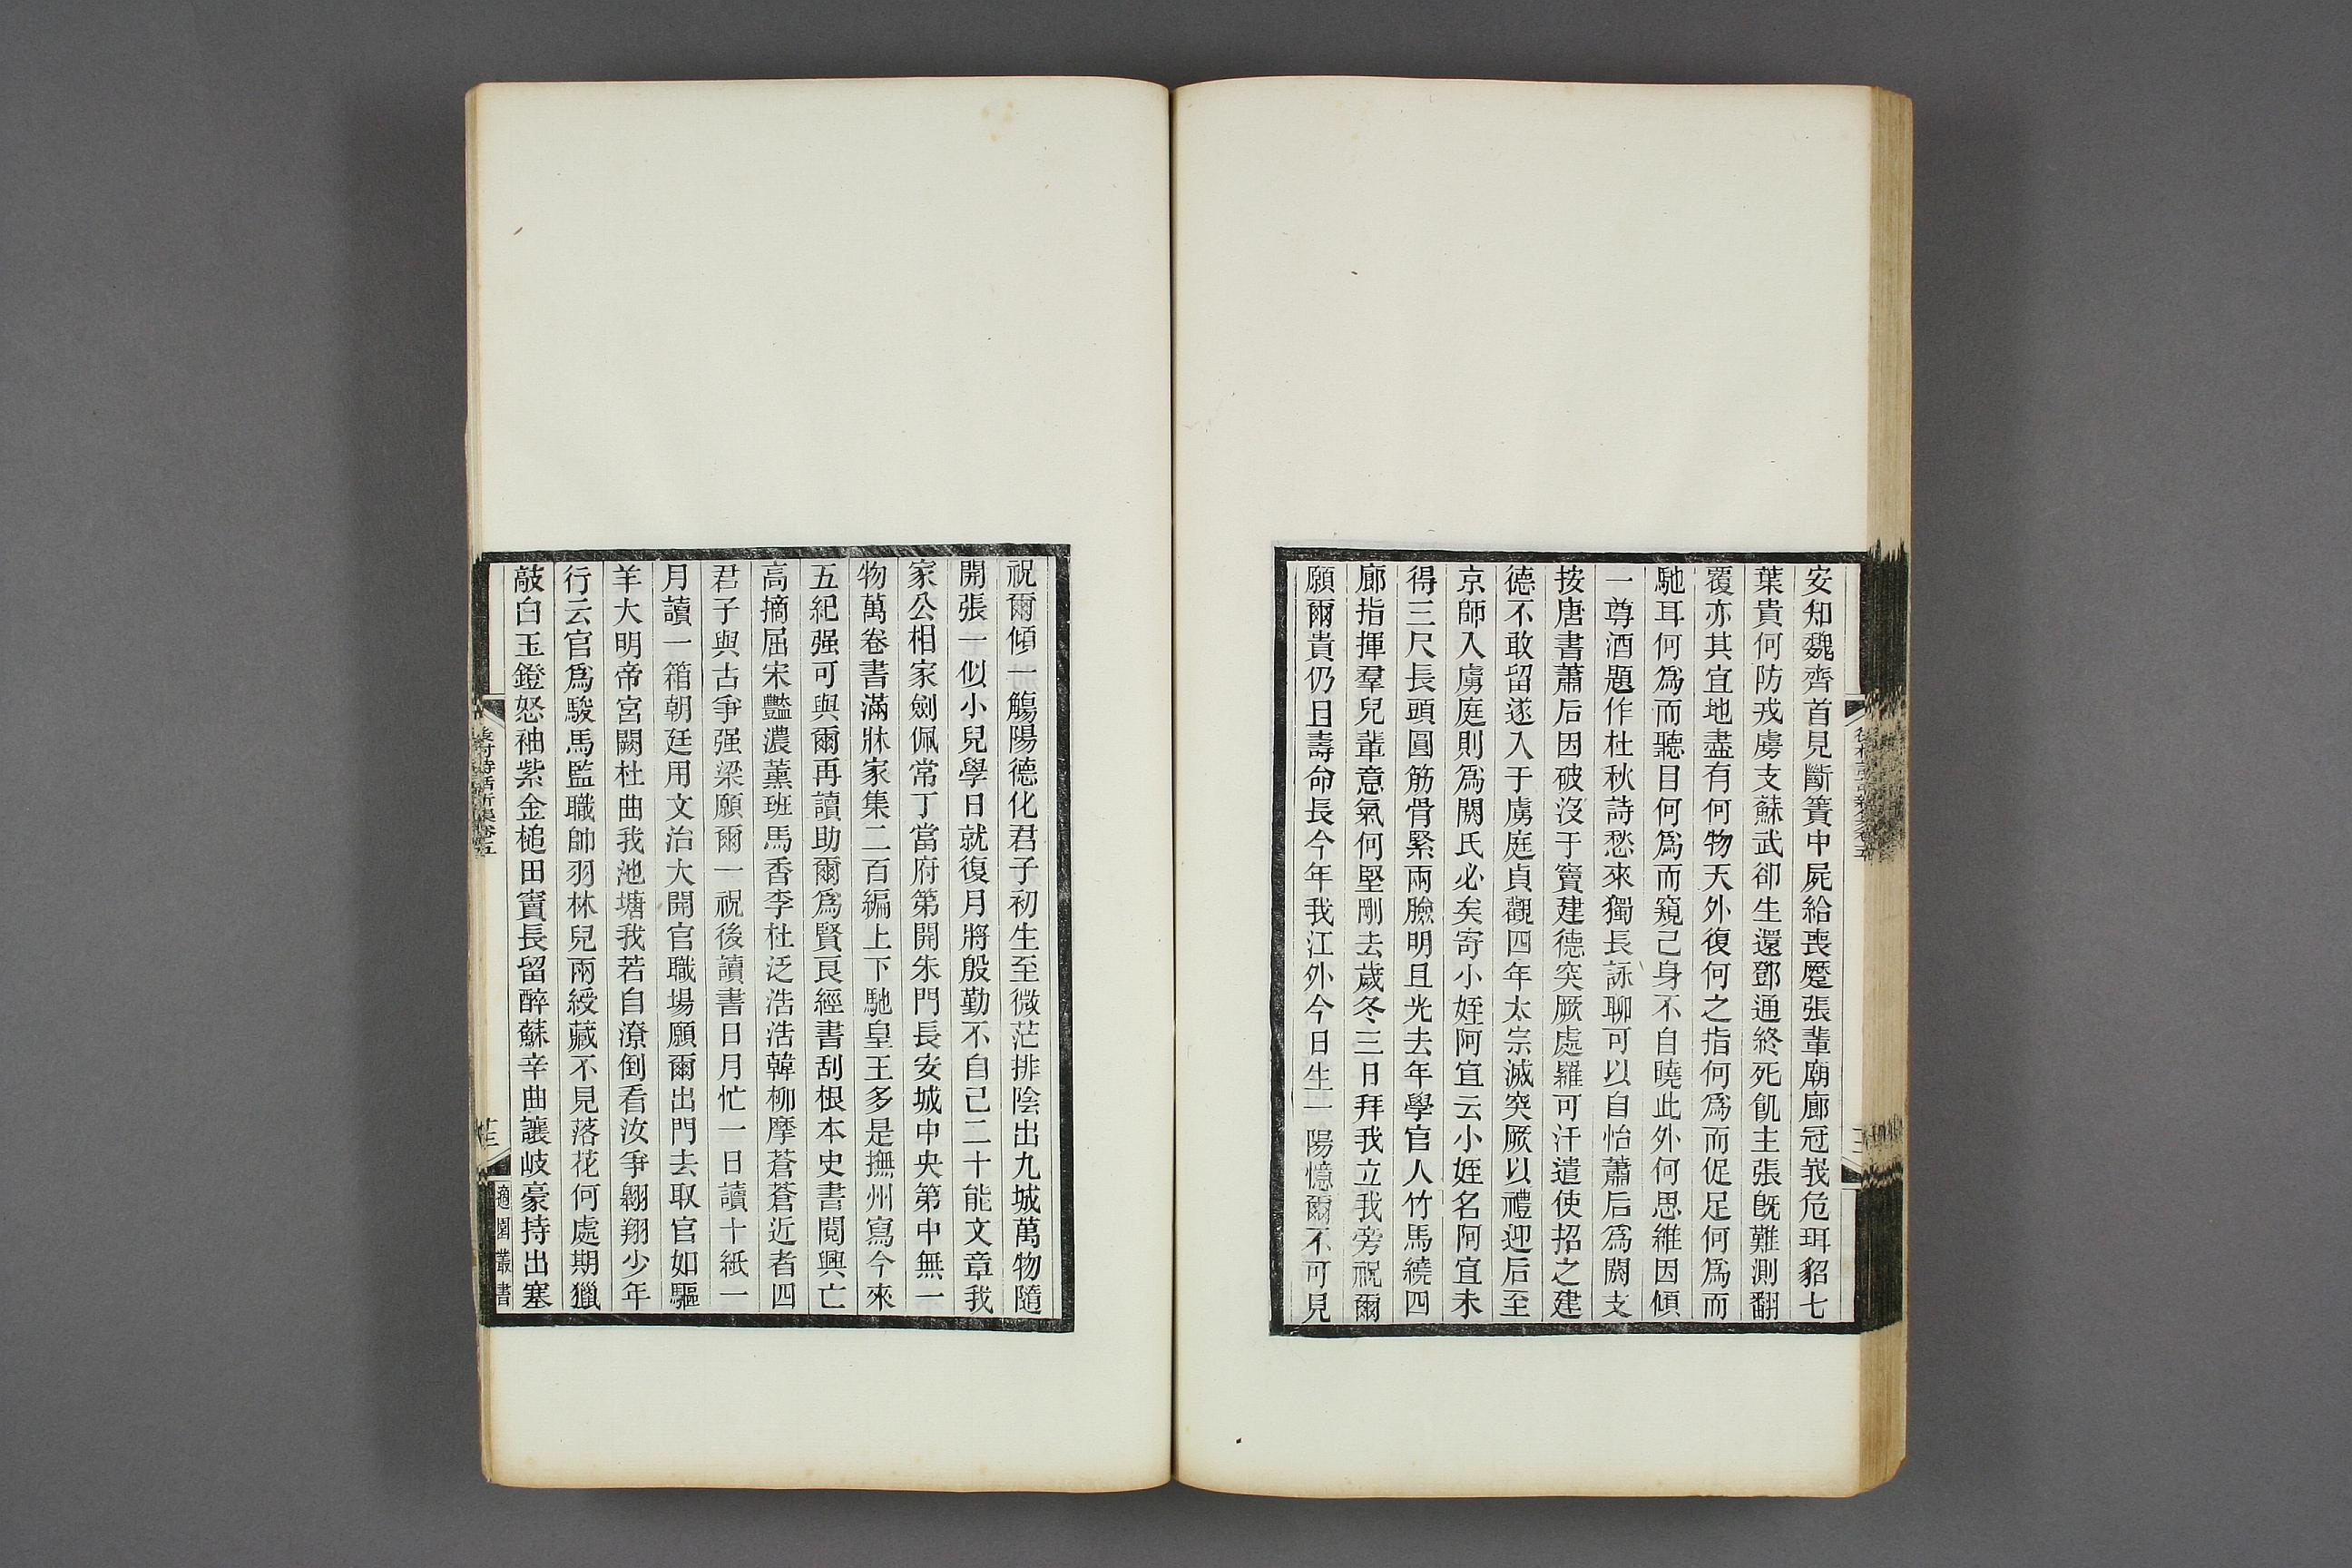 安知魏齊首見斷簀中屍給喪蹷張輩廟廊冠峩危珥貂七
葉貴何防戎虜支蘇武卻生還鄧通終死飢主張旣難測翻
覆亦其宜地盡有何物天外復何之指何爲而促足何爲而
馳耳何爲而聽目何爲而窺己身不自曉此外何思維因傾
一尊酒題作杜秋詩愁來獨長詠聊可以自怡蕭后爲閼支
按唐書蕭后因破沒于竇建德突厥處羅可汗遣使招之建
德不敢留遂入于虜庭貞觀四年太宗滅突厥以禮迎后至
京師入虜庭則爲閼氏必矣寄小姪阿宜云小姪名阿宜未
得三尺長頭圓筋骨緊兩臉明且光去年學官人竹馬繞四
廊指揮羣兒輩意氣何堅剛去歲冬三日拜我立我旁祝爾
願爾貴仍且壽命長今年我江外今日生一陽憶爾不可見
祝爾傾一觴陽德化君子初生至微茫排陰出九城萬物隨
開張一似小兒學日就復月將殷勤不自己二十能文章我
家公相家劍佩常丁當府第開朱門長安城中央第中無一
物萬卷書滿牀家集二百編上下馳皇王多是撫州寫今來
五紀强可與爾再讀助爾爲賢良經書刮根本史書閱興亡
高摘屈宋豔濃薰班馬香李杜泛浩浩韓柳摩蒼蒼近者四
君子與古爭强梁願爾一祝後讀書日月忙一日讀十紙一
月讀一箱朝廷用文治大開官職場願爾出門去取官如驅
羊大明帝宮闕杜曲我池塘我若自潦倒看汝爭翱翔少年
行云官爲駿馬監職帥羽林兒兩綬藏不見落花何處期獵
敲白玉鐙怒袖紫金槌田竇長留醉蘇辛曲讓岐豪持出塞
後村詩話新集卷五
十三
適園叢書